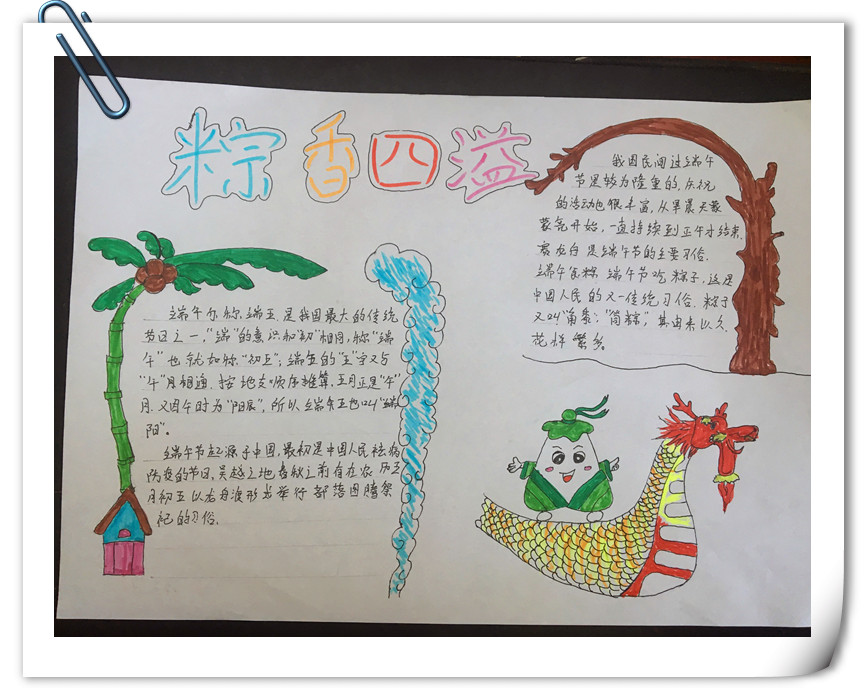 粽香四溢
我国民间过端午
节是较为隆重的,庆祝
的活动也很丰富,从早晨天蒙
蒙亮开始,一直持续到正午才结束.
赛龙舟是端午节的主要习俗.
端午食粽 端午节吃粽子,这是
中国人民的又一传统习俗.粽子
又叫"角黍","筒粽",其由来以久.
花样繁多。
端午亦称端五,是我国最大的传统
节日之一,"端"的意识和"初"相同,称"端
午"也就如称"初五";端五的"五"字又与
"午"月相通.按地支顺序推算,五月正是"午"
月.又因午时为"阳辰",所以端午五也叫"端
阳"。
端午节起源于中国,最初是中国人民祛病
防疫的节日,吴越之地春秋之前有在农历五
月初五以龙舟竞渡形式举行部落图腾祭
祀的习俗.